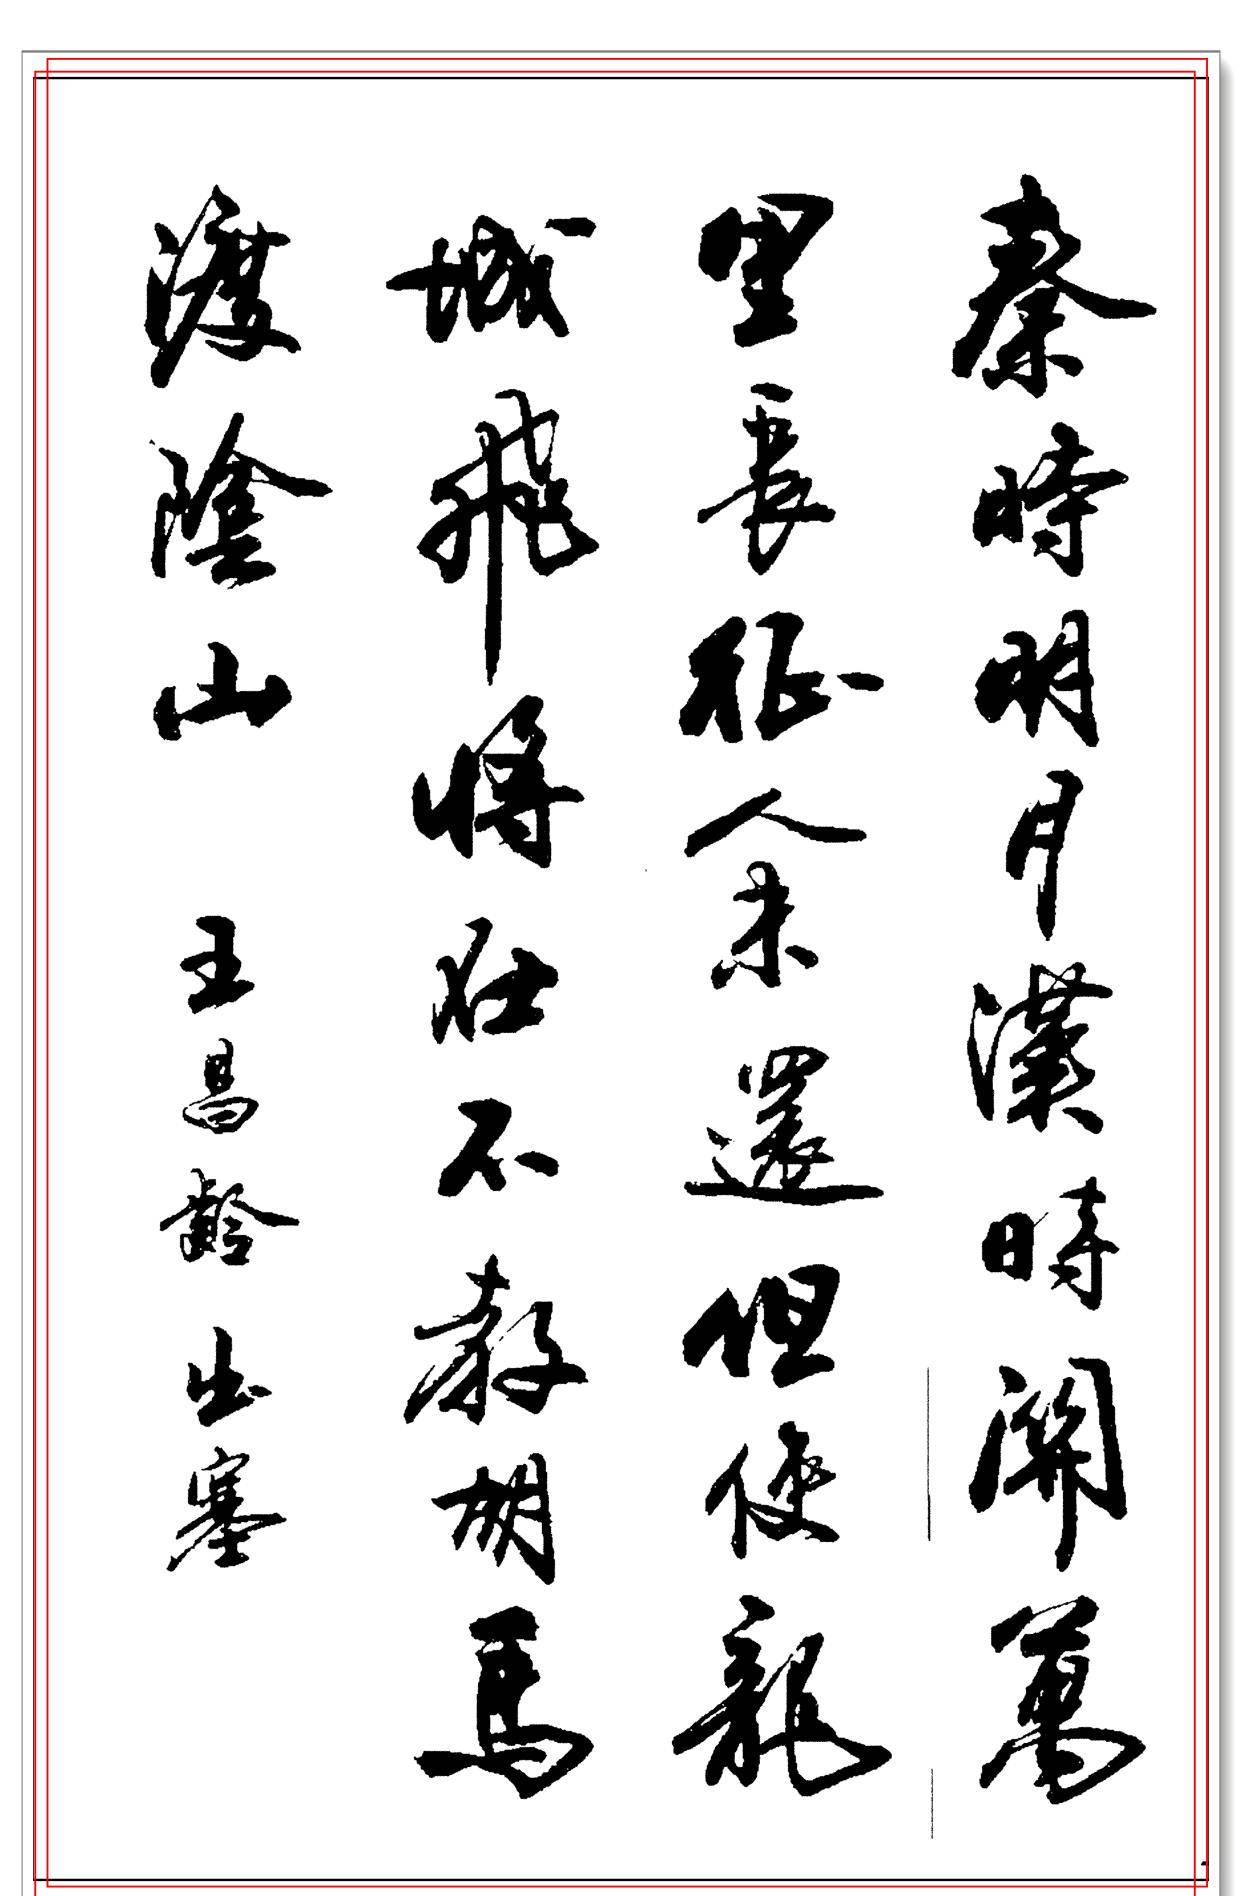 秦時明月漢時關萬
里長征人未還但使龍
城飛將在不教胡馬
渡陰山 王昌齡 出塞